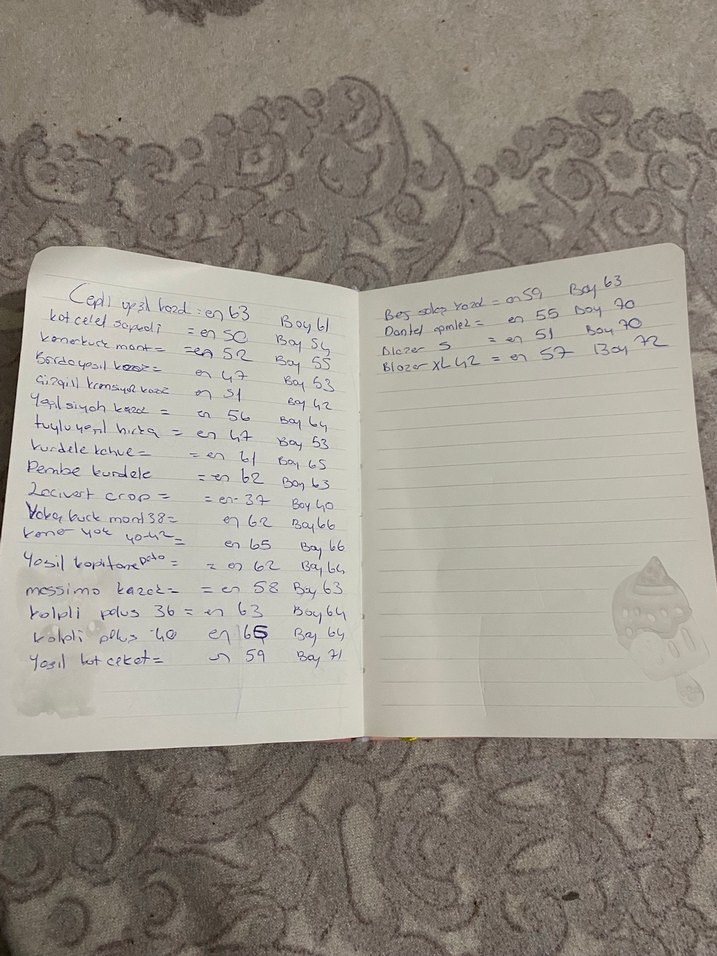 Cepli yeşil kazak = en 63 Boy 61
kot ceket şapkalı = en 50 Boy 54
kemerkürk mont = = en 52 Boy 55
Bordo yeşil kazak = en 47 Boy 53
Çizgili kazak en 51 Boy 42
Yeşil siyah kazak = en 56 Boy 64
tüylü yeşil hırka = en 47 Boy 53
kurdele kahve = = en 61 Boy 65
Pembe kurdele = en 62 Boy 63
Lacivert crop = = en 37 Boy 40
Yaka kürk mont 38 = en 62 Boy 66
kemer yok 40-42 = en 65 Boy 66
Yeşil kapitone = = en 62 Boy 64
massimo kazak = = en 58 Boy 63
kalpli peluş 36 = en 63 Boy 64
kalpli peluş 40 en 65 Boy 64
Yeşil kot ceket = en 59 Boy 71
Bej kazak = en 59 Boy 63
Dantel gömlek = en 55 Boy 70
Blazer S = en 51 Boy 70
Blazer XL 42 = en 57 Boy 72